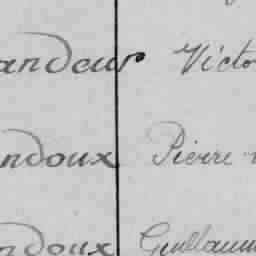 andeur Victo
ndoux Pierre
ndoux Guillaum